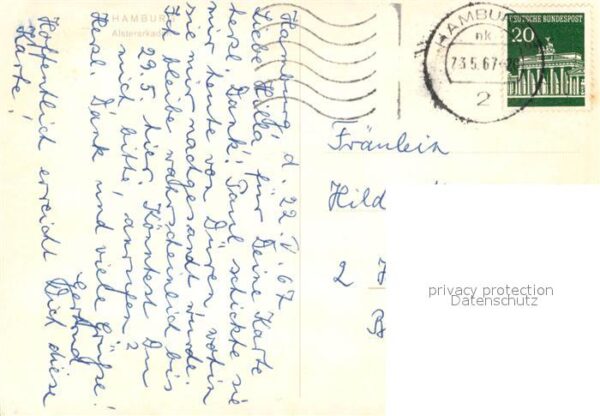 HAMBURG
Alsterarkaden
Hamburg, d. 22. V. 67
Liebe Hilla, für Deine Karte
herzl. Dank! Paul schickte sie
mir heute von Düren, wohin
sie mir nachgesandt wurde.
Ich bleibe wahrscheinlich bis
29.5. hier. Könntest Du
mich bitte anrufen?
Herzl. Dank und viele Grüße!
Gertrud
Hoffentlich erreicht Dich diese
Karte!
HAMBURG
nk
23.5.67-20
2
DEUTSCHE BUNDESPOST
20
Fräulein
Hild
2
privacy protection
Datenschutz